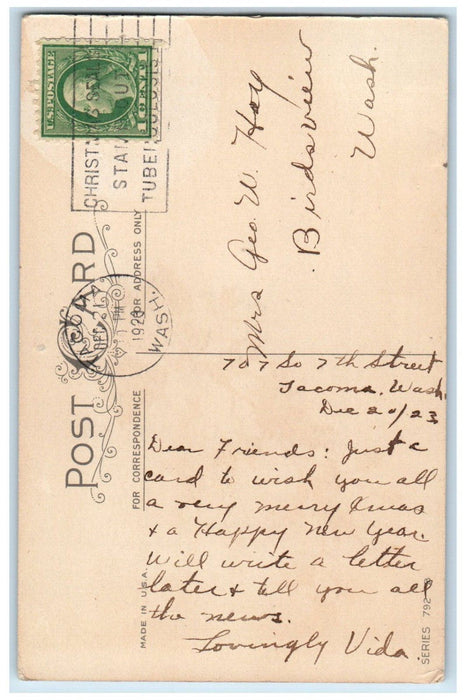 CHRISTM
S SEAL
STAM
OUT
TUBERCULOSIS
U.S. POSTAGE
1 CENT 1
POST CARD
FOR ADDRESS ONLY
TACOMA
WASH.
DEC 21
PM
1923
FOR CORRESPONDENCE
MADE IN U.S.A.
SERIES 792
Mrs Geo. W. Hoy
Birdsview
Wash.
707 So 7th Street
Tacoma, Wash.
Dec 20/23
Dear Friends: Just a
card to wish you all
a very merry Xmas
+ a Happy New Year.
Will write a letter
later + tell you all
the news.
Lovingly Vida.